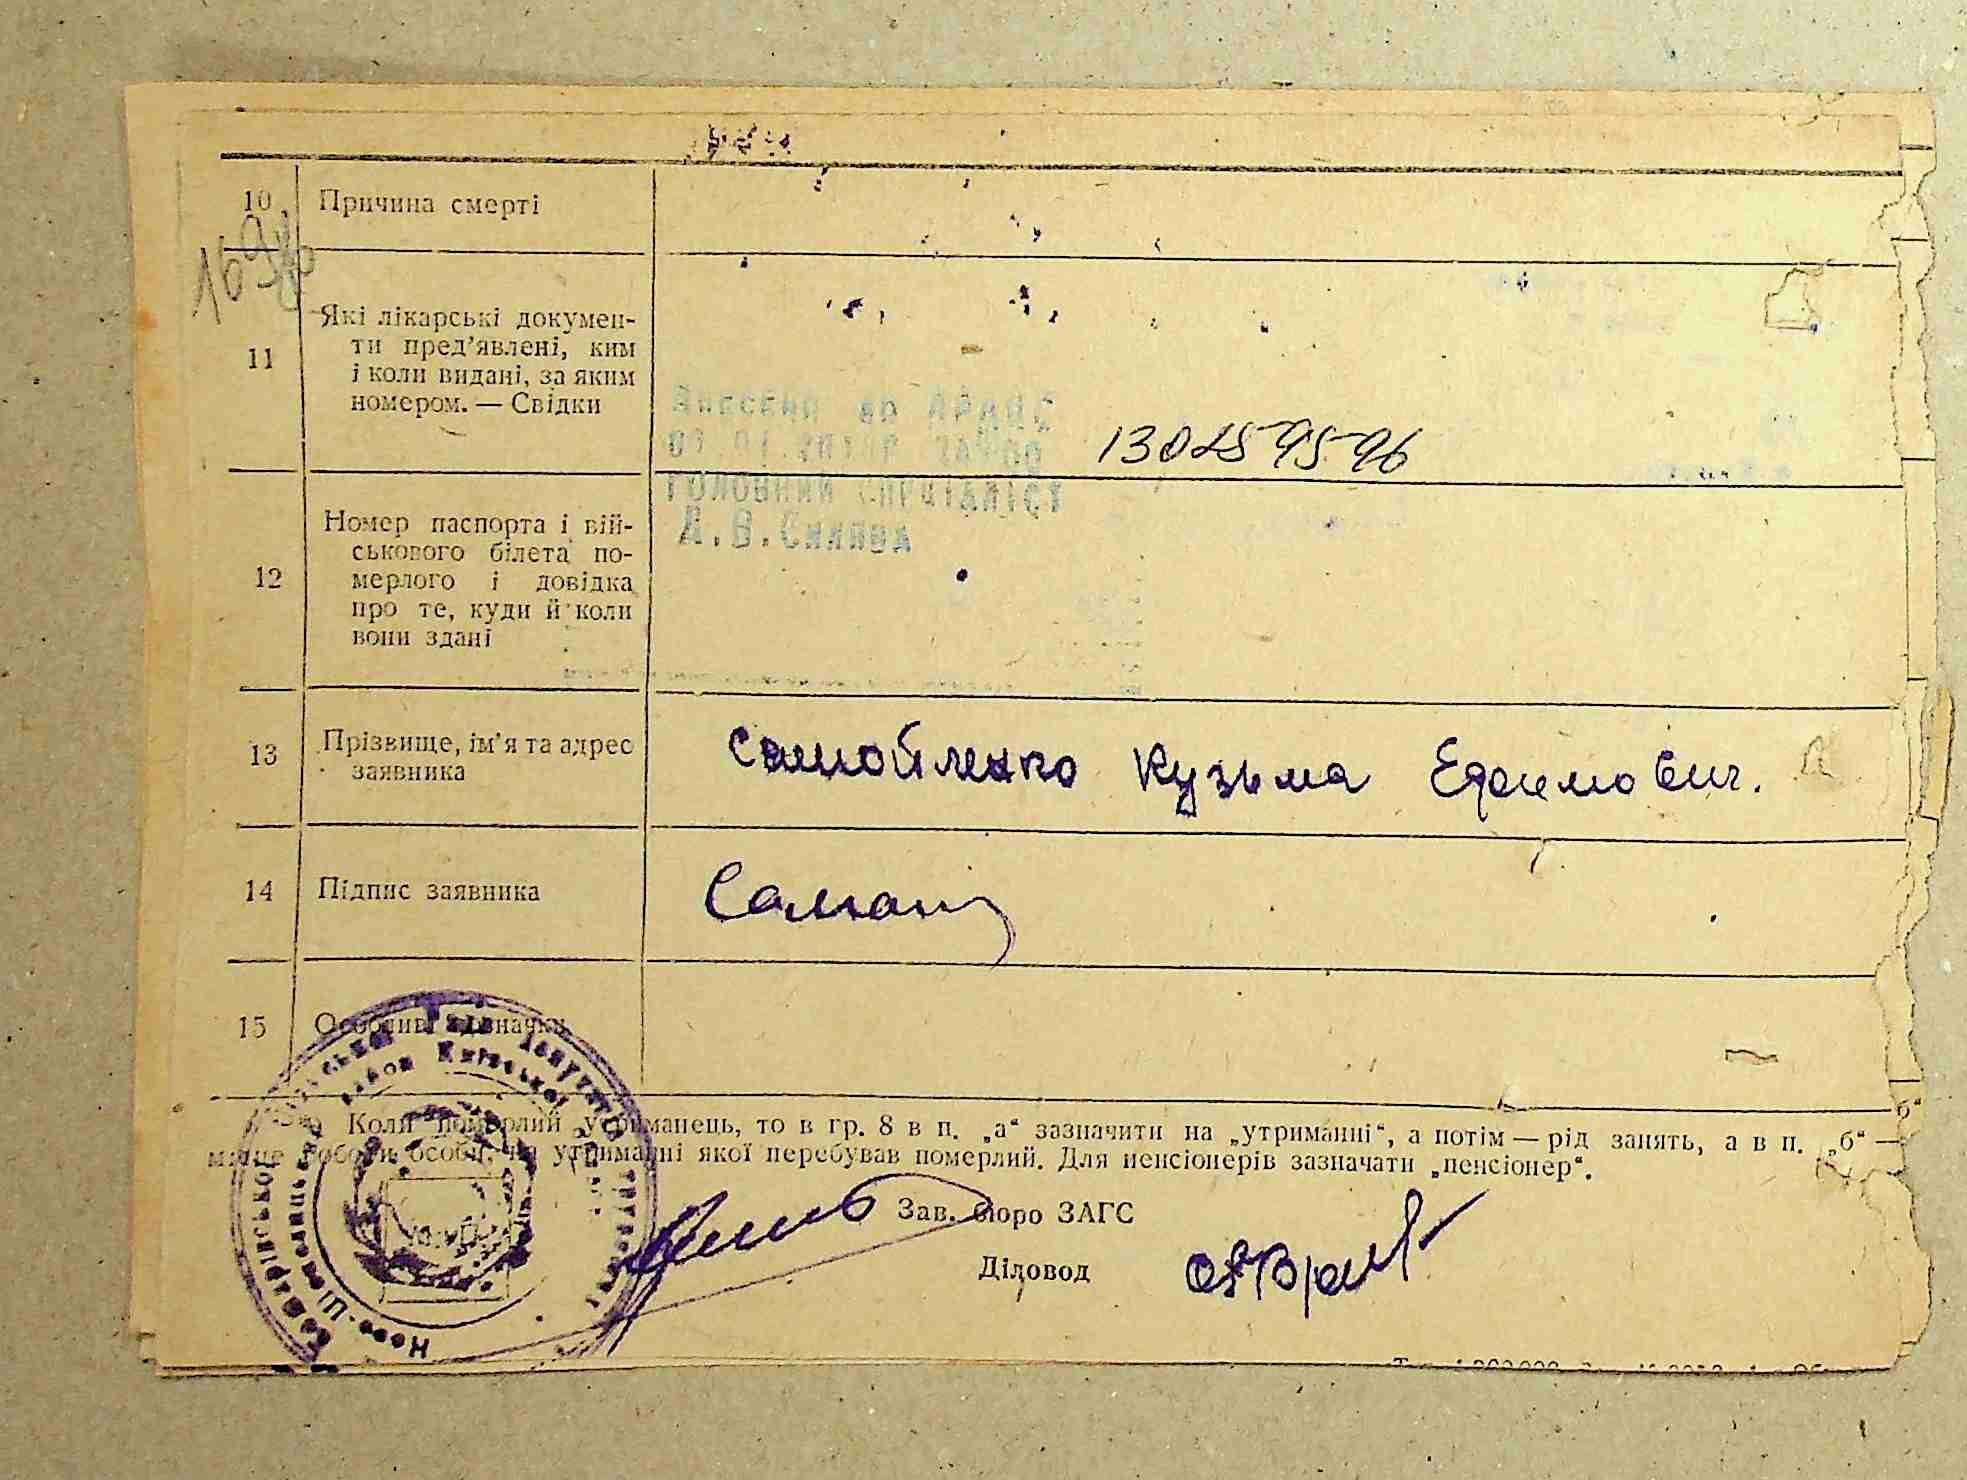 10 Причина смерті
11 Які лікарські докумен-
ти пред’явлені, ким
і коли видані, за яким
номером. — Свідки
Внесено до
1302595-96
головний спеціаліст
12 Номер паспорта і вій-
ськового білета по-
мерлого і довідка
про те, куди й коли
вони здані
13 Прізвище, ім’я та адрес
заявника
Самойленко Кузьма Ефимович.
14 Підпис заявника
15 Особливі відзначки
Коли померлий утриманець, то в гр. 8 в п. „а“ зазначити на „утриманні“, а потім — рід занять, а в п. „б“ —
місце роботи особи, на утриманні якої перебував померлий. Для пенсіонерів зазначати „пенсіонер“.
Зав. бюро ЗАГС
Діловод